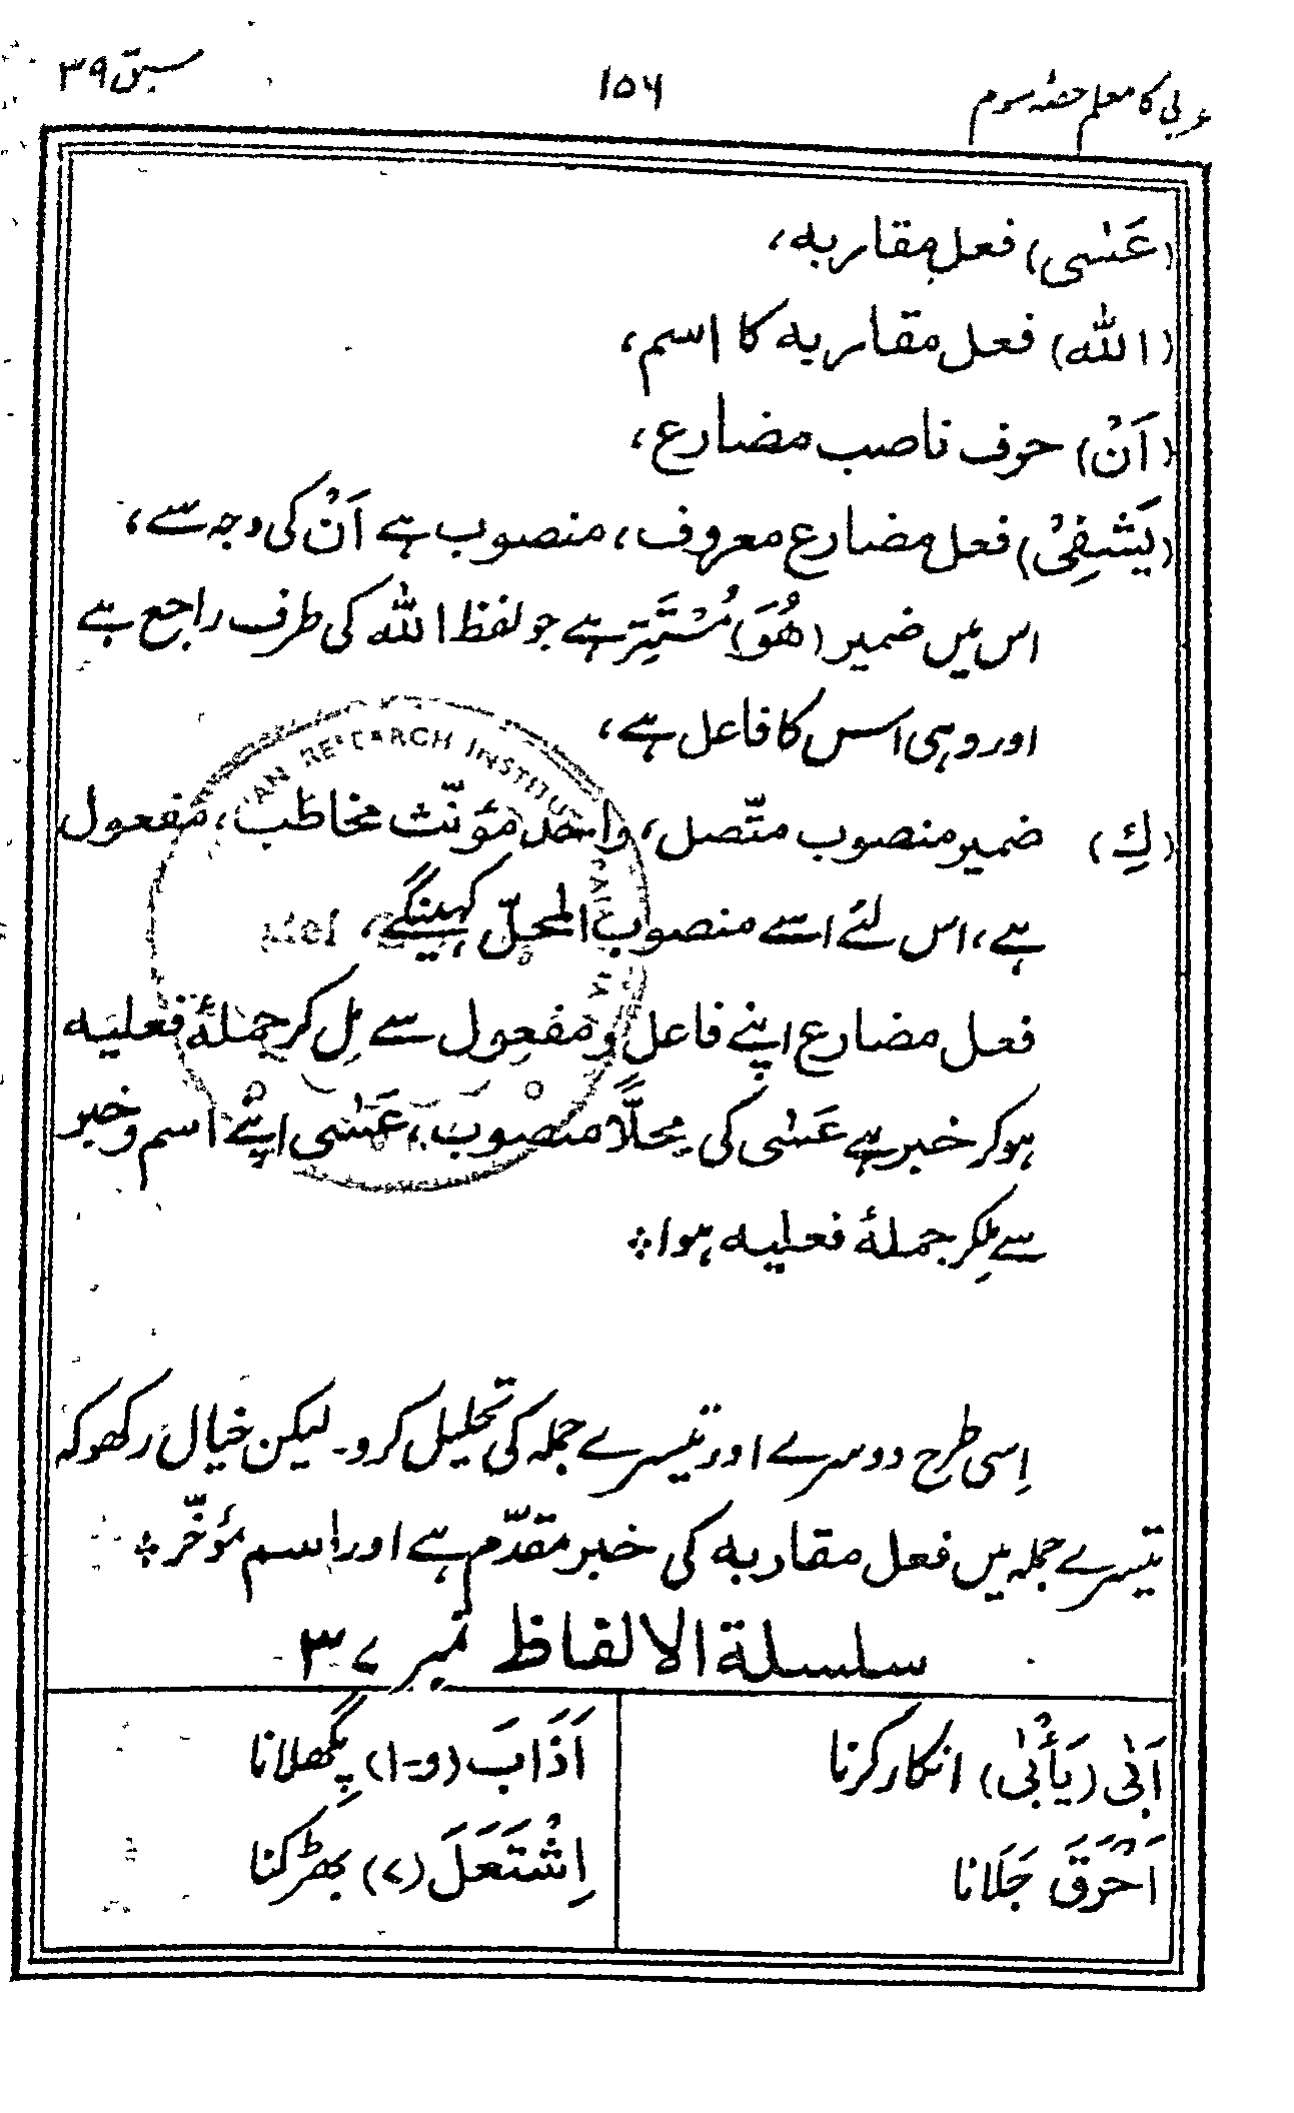 عربی کا معلم حصّہ سوم
۱۵۶
سبق ۳۹
(عَسٰی) فعل مقاربہ،
(اللّٰه) فعل مقاربہ کا اسم،
(اَنْ) حرف ناصب مضارع،
(یَشْفِیْ) فعل مضارع معروف، منصوب ہے اَنْ کی وجہ سے،
اس میں ضمیر (ھُوَ) مُسْتَتِر ہے جو لفظ اللّٰه کی طرف راجع ہے
اور وہی اس کا فاعل ہے،
(كِ) ضمیر منصوب متّصل، واحد مؤنّث مخاطب، مفعول
ہے، اس لئے اسے منصوب المحلّ کہینگے،
فعل مضارع اپنے فاعل و مفعول سے مِل کر جملۂ فعلیہ
ہو کر خبر ہے عَسٰی کی محلّاً منصوب، عَسٰی اپنے اسم و خبر
سے مِلکر جملۂ فعلیہ ہوا ؞
اِسی طرح دوسرے اور تیسرے جملہ کی تحلیل کرو۔ لیکن خیال رکھو کہ
تیسرے جملہ میں فعل مقاربہ کی خبر مقدّم ہے اور اسم مؤخّر ؞
سلسلة الالفاظ نمبر ۳۷
اَبٰی (یَأْبٰی) انکار کرنا
اَذَابَ (و-۱) پِگھلانا
اَحْرَقَ جَلَانا
اِشْتَعَلَ (۷) بھڑکنا
RESEARCH INSTITU